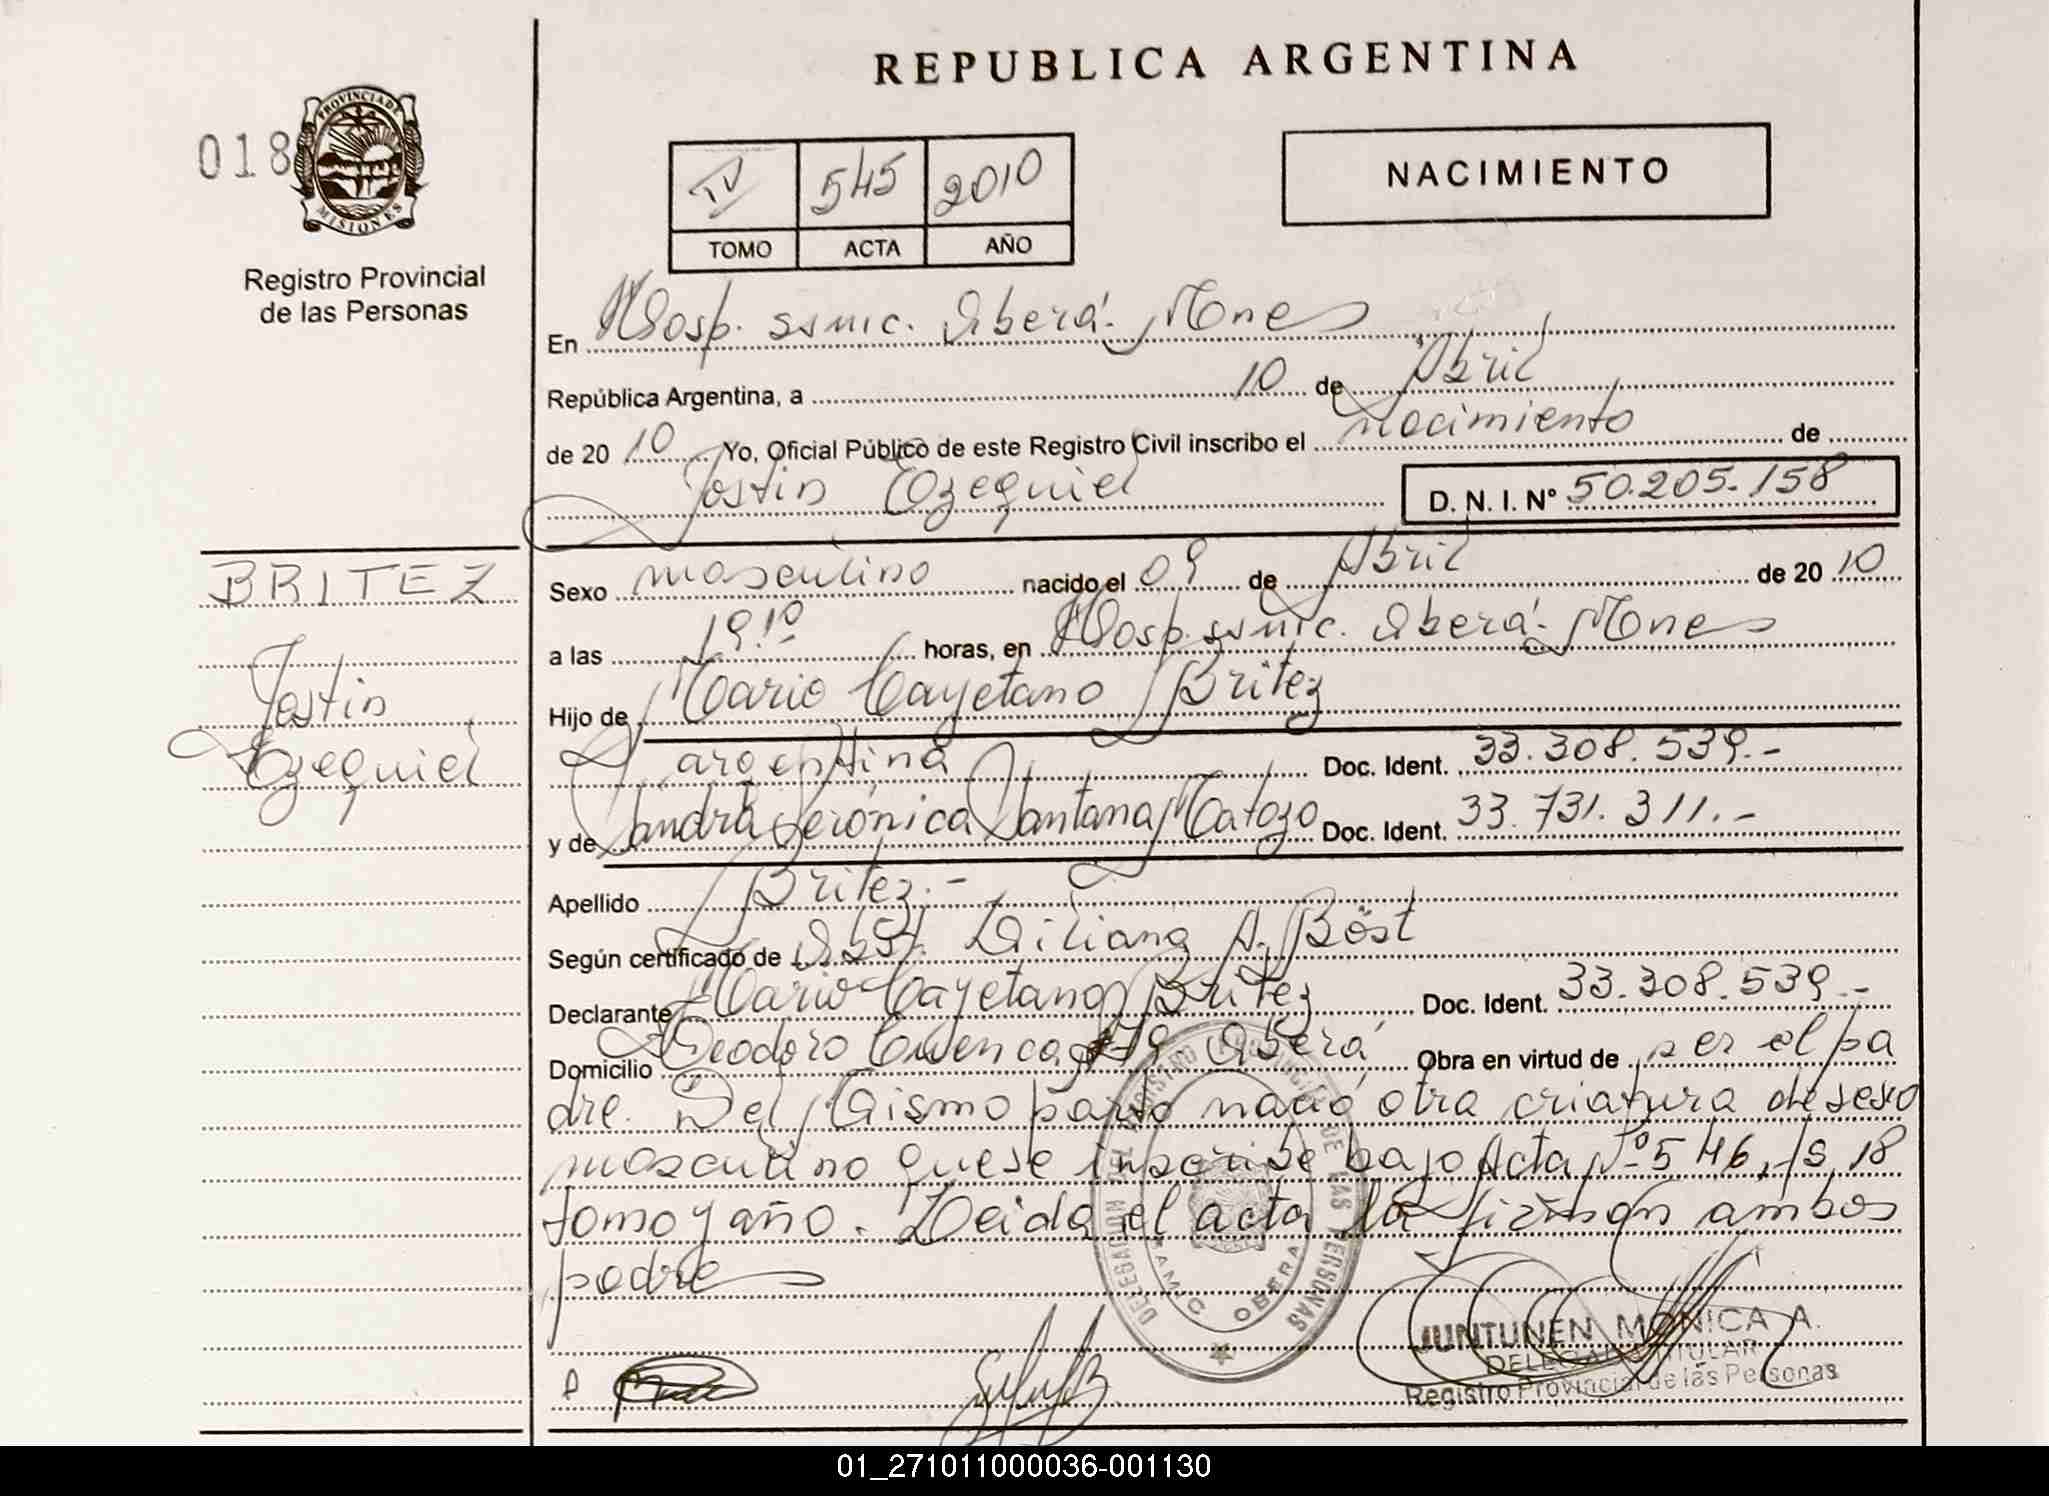 REPUBLICA ARGENTINA
018
PROVINCIA DE
MISIONES
Registro Provincial
de las Personas
IV 545 2010
TOMO ACTA AÑO
NACIMIENTO
En Hosp. ssmic. Oberá. Mnes
República Argentina, a 10 de Abril
de 20 10 Yo, Oficial Público de este Registro Civil inscribo el Nacimiento de
Jostin Ezequiel D. N. I. Nº 50.205.158
BRITEZ
Jostin
Ezequiel
Sexo masculino nacido el 09 de Abril de 20 10
a las 19.10 horas, en Hosp. ssmic. Oberá. Mnes
Hijo de Mario Cayetano Britez
argentina Doc. Ident. 33.308.539.-
y de Sandra Verónica Santana Matozo Doc. Ident. 33.731.311.-
Apellido Britez.-
Según certificado de Obst. Liliana A. Böst
Declarante Mario Cayetano Britez Doc. Ident. 33.308.539.-
Domicilio Teodoro Cuenca 79 Oberá Obra en virtud de ser el pa
dre. Del Mismo parto nació otra criatura de sexo
masculino que se inscribe bajo Acta Nº 546, fs 18
tomo y año. Leida el acta la firman ambos
padre
DELEGACION DEL REGISTRO PROVINCIAL DE LAS PERSONAS
OBERA
JUNTUNEN MONICA A.
DELEGADA TITULAR
Registro Provincial de las Personas
01_271011000036-001130